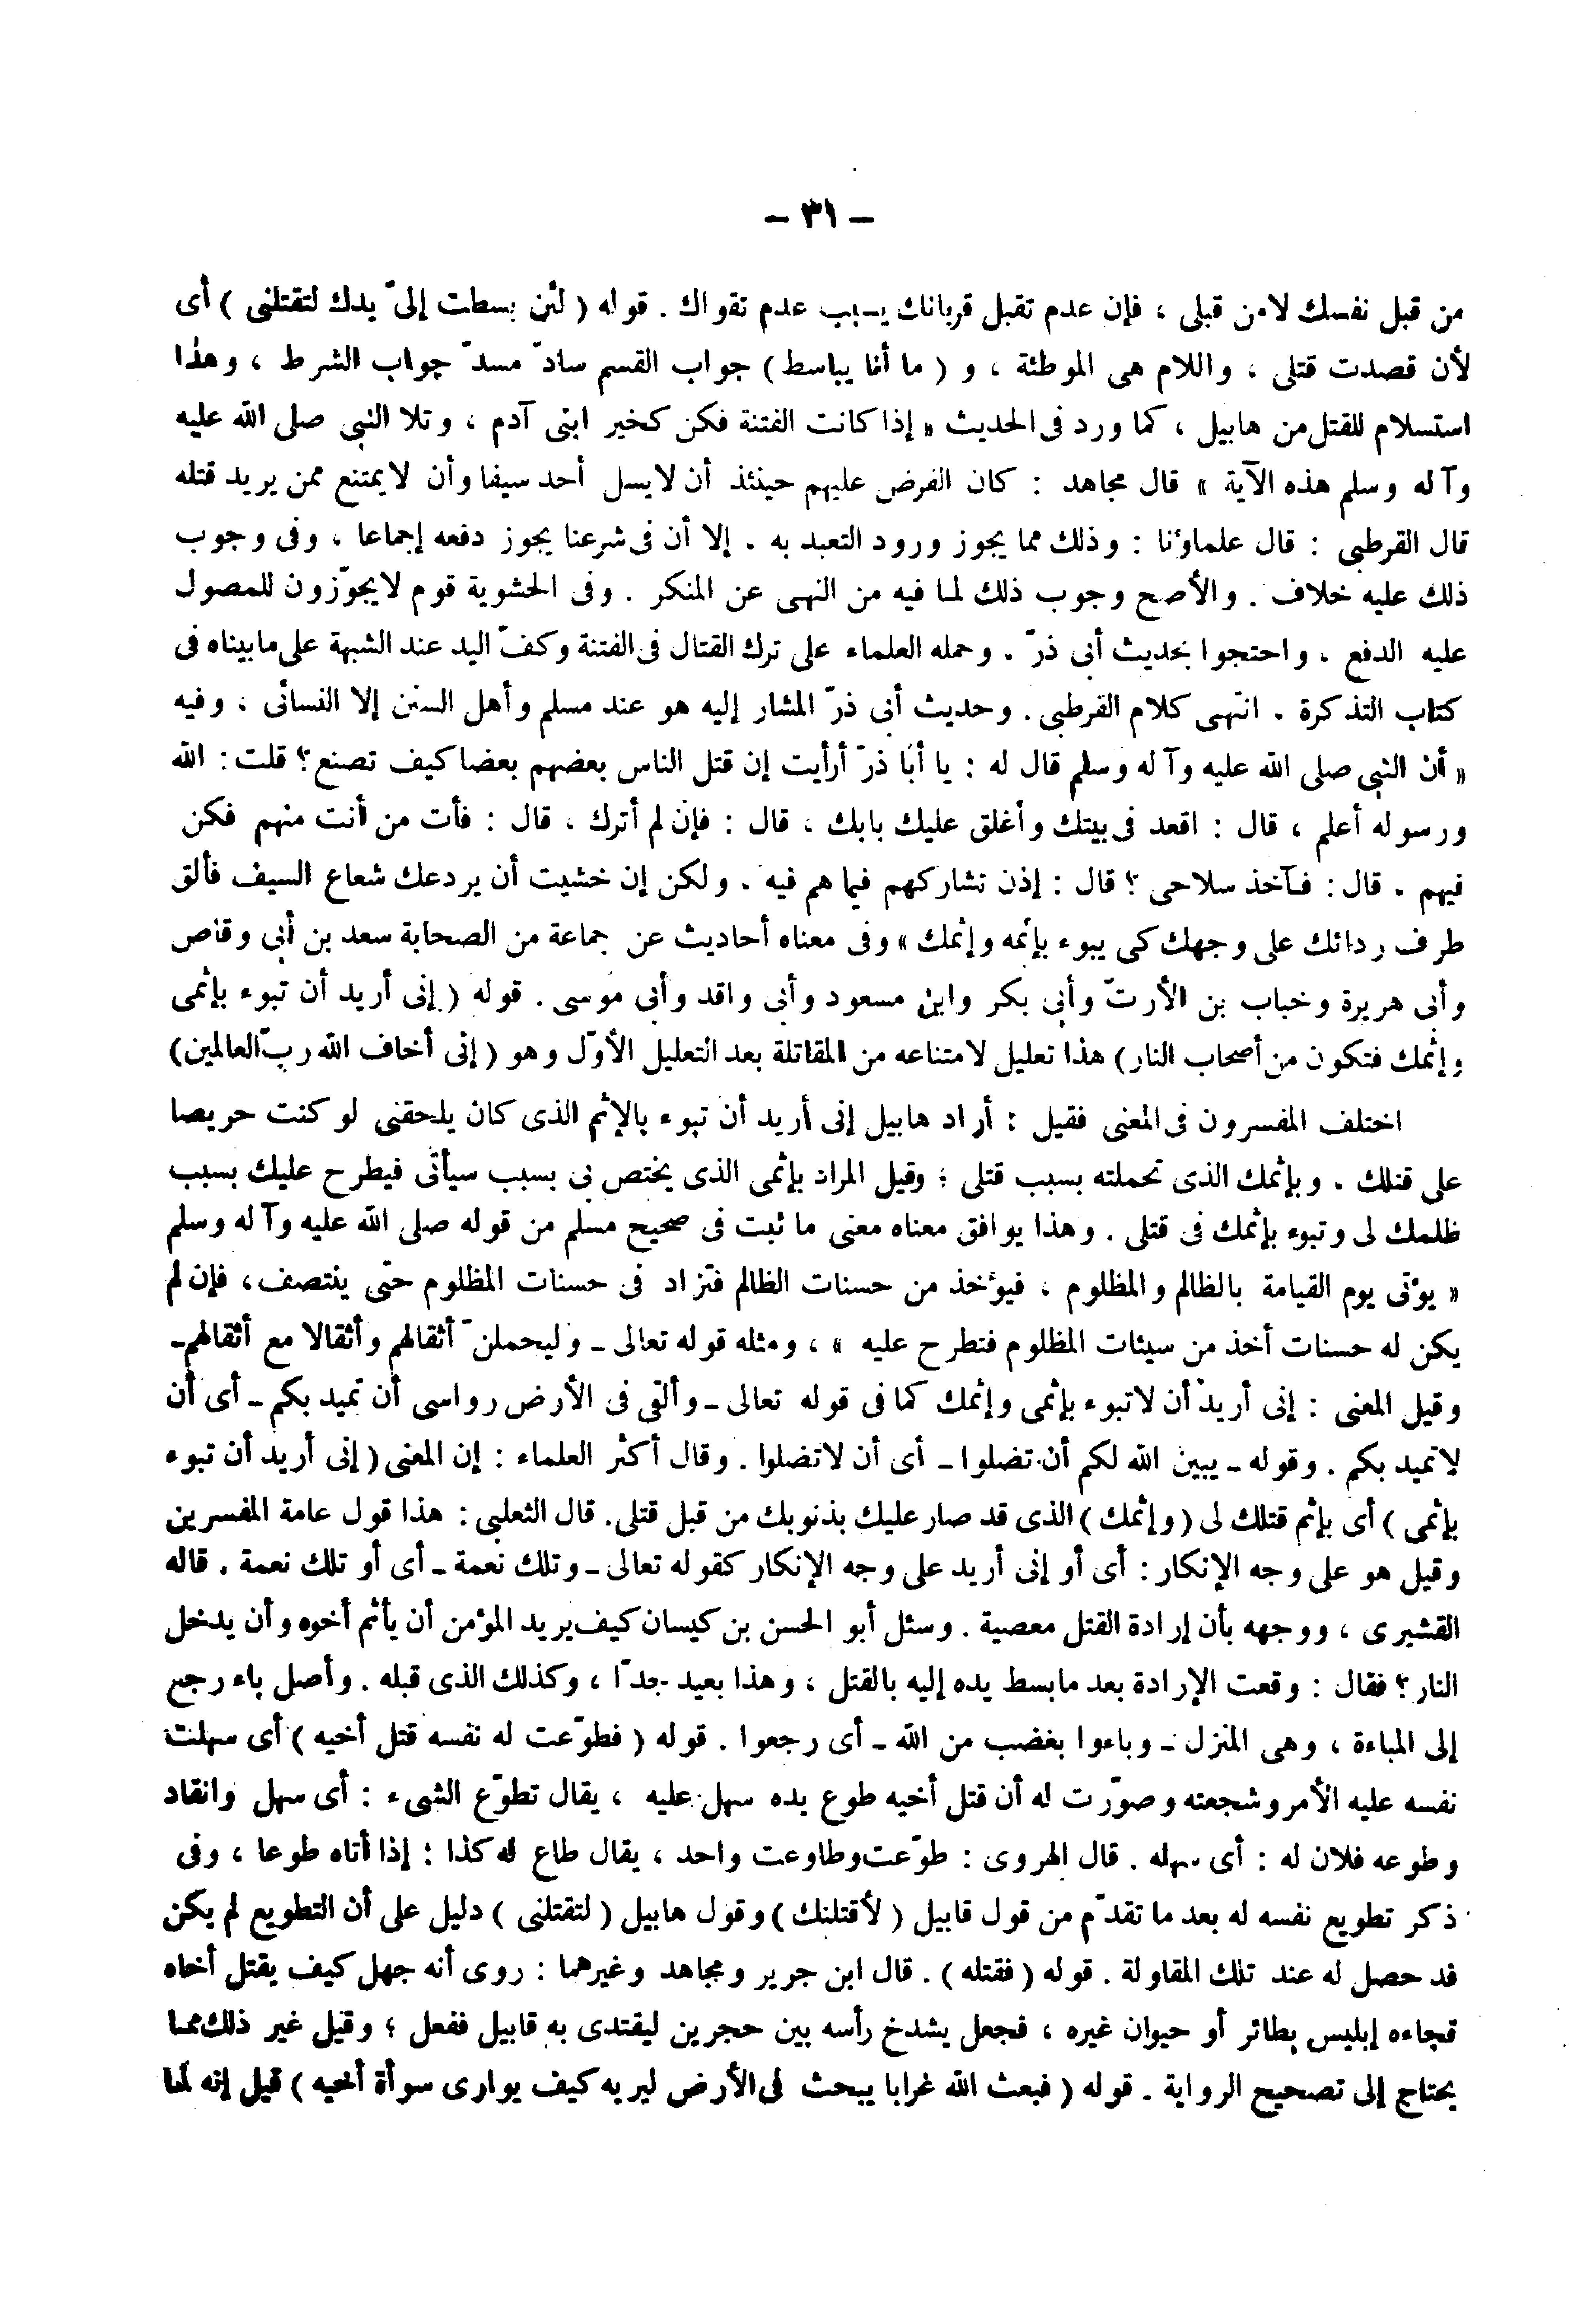 – ٣١ –
من قبل نفسك لا من قبلى ، فإن عدم تقبل قربانك بسبب عدم تقواك . قوله ( لئن بسطت إلىّ يدك لتقتلنى ) أى
لأن قصدت قتلى ، واللام هى الموطئة ، و ( ما أنا بباسط ) جواب القسم سادّ مسدّ جواب الشرط ، وهذا
استسلام للقتل من هابيل ، كما ورد فى الحديث « إذا كانت الفتنة فكن كخير ابنى آدم ، وتلا النبى صلى الله عليه
وآله وسلم هذه الآية » قال مجاهد : كان الفرض عليهم حينئذ أن لا يسل أحد سيفا وأن لا يمتنع ممن يريد قتله
قال القرطبى : قال علماؤنا : وذلك مما يجوز ورود التعبد به . إلا أن فى شرعنا يجوز دفعه إجماعا ، وفى وجوب
ذلك عليه خلاف . والأصح وجوب ذلك لما فيه من النهى عن المنكر . وفى الحشوية قوم لا يجوّزون للمصول
عليه الدفع . واحتجوا بحديث أبى ذرّ . وحمله العلماء على ترك القتال فى الفتنة وكفّ اليد عند الشبهة على ما بيناه فى
كتاب التذكرة . انتهى كلام القرطبى . وحديث أبى ذرّ المشار إليه هو عند مسلم وأهل السنن إلا النسائى ، وفيه
« أن النبى صلى الله عليه وآله وسلم قال له : يا أبا ذرّ أرأيت إن قتل الناس بعضهم بعضا كيف تصنع ؟ قلت : الله
ورسوله أعلم ، قال : اقعد فى بيتك وأغلق عليك بابك ، قال : فإن لم أترك ، قال : فأت من أنت منهم فكن
فيهم . قال : فآخذ سلاحى ؟ قال : إذن تشاركهم فيما هم فيه . ولكن إن خشيت أن يردعك شعاع السيف فألق
طرف ردائك على وجهك كى يبوء بإثمه وإثمك » وفى معناه أحاديث عن جماعة من الصحابة سعد بن أبى وقاص
وأبى هريرة وخباب بن الأرتّ وأبى بكر وابن مسعود وأبى واقد وأبى موسى . قوله ( إنى أريد أن تبوء بإثمى
وإثمك فتكون من أصحاب النار ) هذا تعليل لامتناعه من المقاتلة بعد التعليل الأوّل وهو ( إنى أخاف الله ربّ العالمين )
اختلف المفسرون فى المعنى فقيل : أراد هابيل إنى أريد أن تبوء بالإثم الذى كان يلحقنى لو كنت حريصا
على قتلك . وبإثمك الذى تحملته بسبب قتلى ؛ وقيل المراد بإثمى الذى يختص بى بسبب سيآتى فيطرح عليك بسبب
ظلمك لى وتبوء بإثمك فى قتلى . وهذا يوافق معناه معنى ما ثبت فى صحيح مسلم من قوله صلى الله عليه وآله وسلم
« يؤتى يوم القيامة بالظالم والمظلوم ، فيؤخذ من حسنات الظالم فتزاد فى حسنات المظلوم حتى ينتصف ، فإن لم
يكن له حسنات أخذ من سيئات المظلوم فتطرح عليه » ، ومثله قوله تعالى ـ وليحملنّ أثقالهم وأثقالا مع أثقالهم ـ
وقيل المعنى : إنى أريد أن لا تبوء بإثمى وإثمك كما فى قوله تعالى ـ وألقى فى الأرض رواسى أن تميد بكم ـ أى أن
لا تميد بكم . وقوله ـ يبين الله لكم أن تضلوا ـ أى أن لا تضلوا . وقال أكثر العلماء : إن المعنى ( إنى أريد أن تبوء
بإثمى ) أى بإثم قتلك لى ( وإثمك ) الذى قد صار عليك بذنوبك من قبل قتلى . قال الثعلبى : هذا قول عامة المفسرين
وقيل هو على وجه الإنكار : أى أو إنى أريد على وجه الإنكار كقوله تعالى ـ وتلك نعمة ـ أى أو تلك نعمة . قاله
القشيرى ، ووجهه بأن إرادة القتل معصية . وسئل أبو الحسن بن كيسان كيف يريد المؤمن أن يأثم أخوه وأن يدخل
النار ؟ فقال : وقعت الإرادة بعد ما بسط يده إليه بالقتل ، وهذا بعيد جدّا ، وكذلك الذى قبله . وأصل باء رجع
إلى المباءة ، وهى المنزل ـ وباءوا بغضب من الله ـ أى رجعوا . قوله ( فطوّعت له نفسه قتل أخيه ) أى سهلت
نفسه عليه الأمر وشجعته وصوّرت له أن قتل أخيه طوع يده سهل عليه ، يقال تطوّع الشىء : أى سهل وانقاد
وطوعه فلان له : أى سهله . قال الهروى : طوّعت وطاوعت واحد ، يقال طاع له كذا : إذا أتاه طوعا ، وفى
ذكر تطويع نفسه له بعد ما تقدّم من قول قابيل ( لأقتلنك ) وقول هابيل ( لتقتلنى ) دليل على أن التطويع لم يكن
قد حصل له عند تلك المقاولة . قوله ( فقتله ) . قال ابن جرير ومجاهد وغيرهما : روى أنه جهل كيف يقتل أخاه
فجاءه إبليس بطائر أو حيوان غيره ، فجعل يشدخ رأسه بين حجرين ليقتدى به قابيل ففعل ؛ وقيل غير ذلك مما
يحتاج إلى تصحيح الرواية . قوله ( فبعث الله غرابا يبحث فى الأرض ليريه كيف يوارى سوأة أخيه ) قيل إنه لما